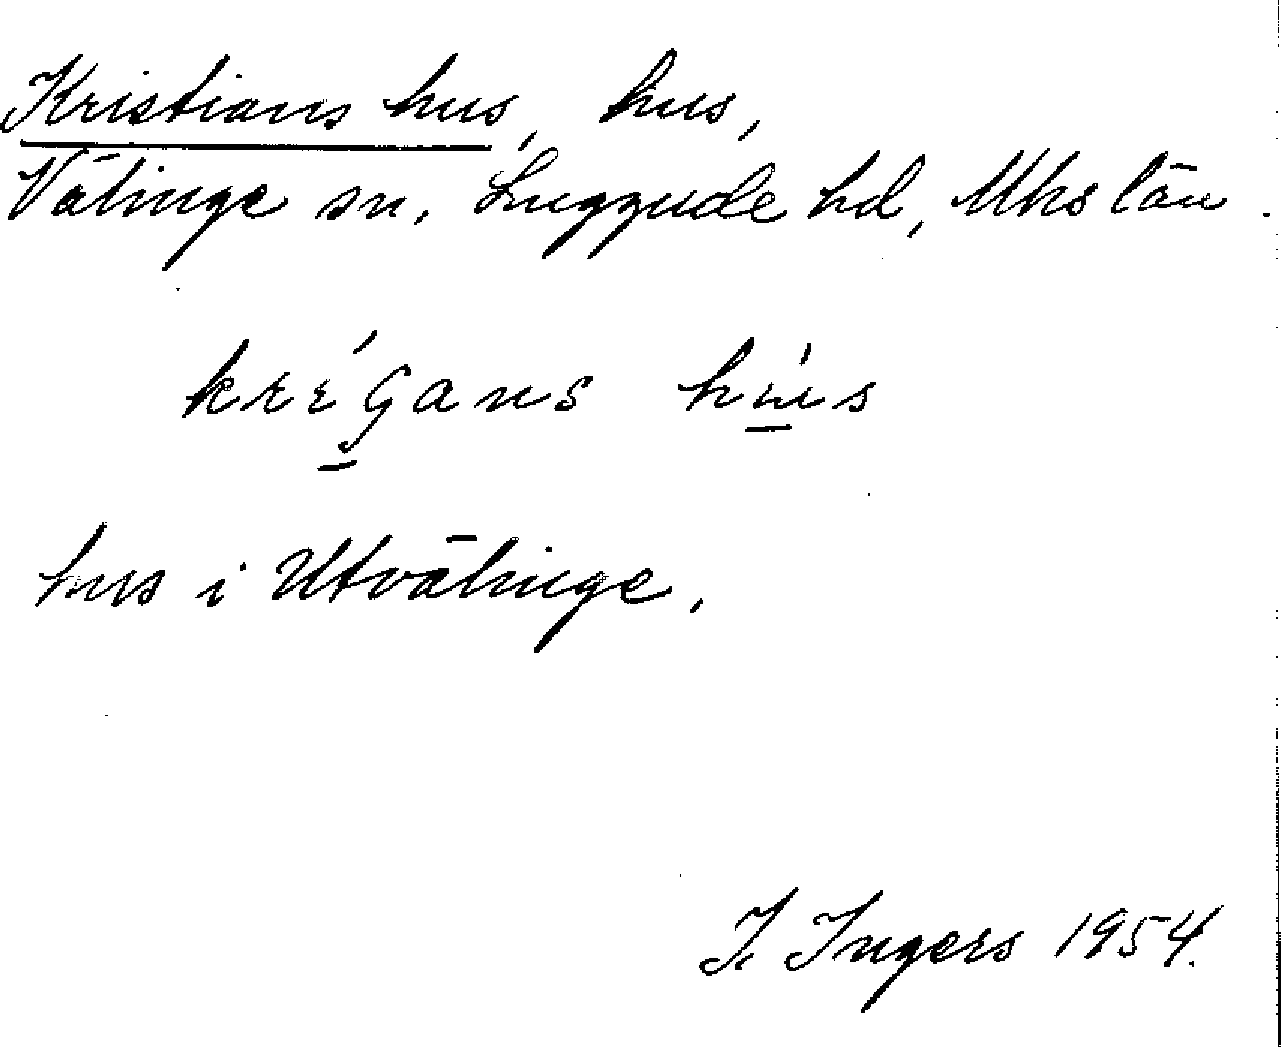 Kristians hus, hus,
Välinge sn, Luggude hd, Mhs län.
hus i Utvälinge.
I. Ingers 1954.